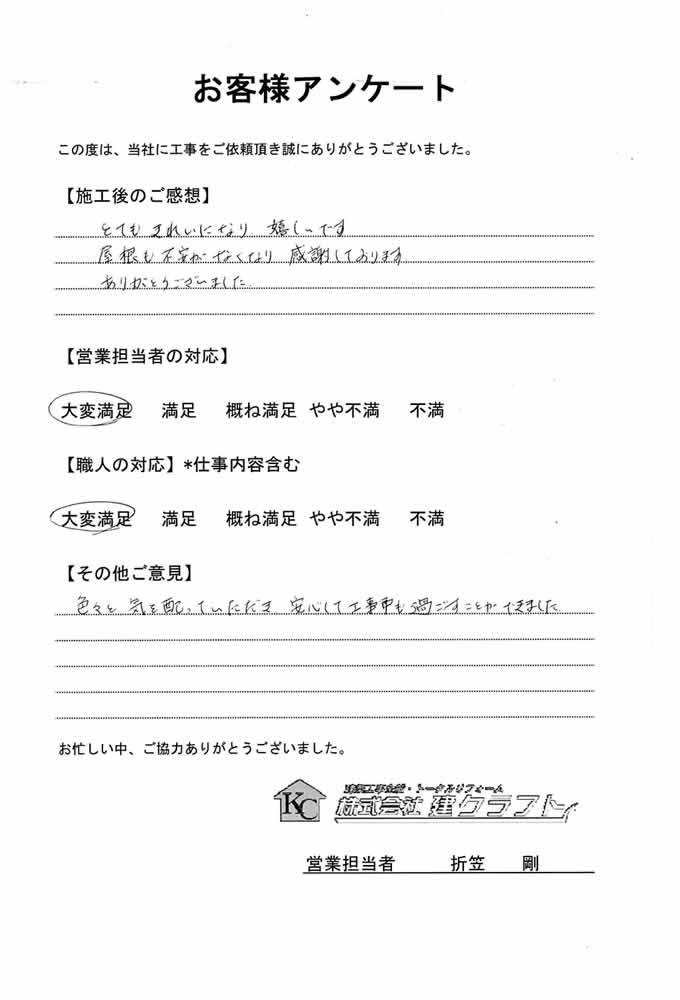 お客様アンケート
この度は、当社に工事をご依頼頂き誠にありがとうございました。
【施工後のご感想】
とてもきれいになり 嬉しいです
屋根も不安がなくなり 感謝しております
ありがとうございました
【営業担当者の対応】
大変満足 満足 概ね満足 やや不満 不満
【職人の対応】*仕事内容含む
大変満足 満足 概ね満足 やや不満 不満
【その他ご意見】
色々と 気を配っていただき 安心して工事中も過ごすことができました
お忙しい中、ご協力ありがとうございました。
建築工事全般・トータルリフォーム
KC 株式会社 建クラフト
営業担当者 折笠 剛